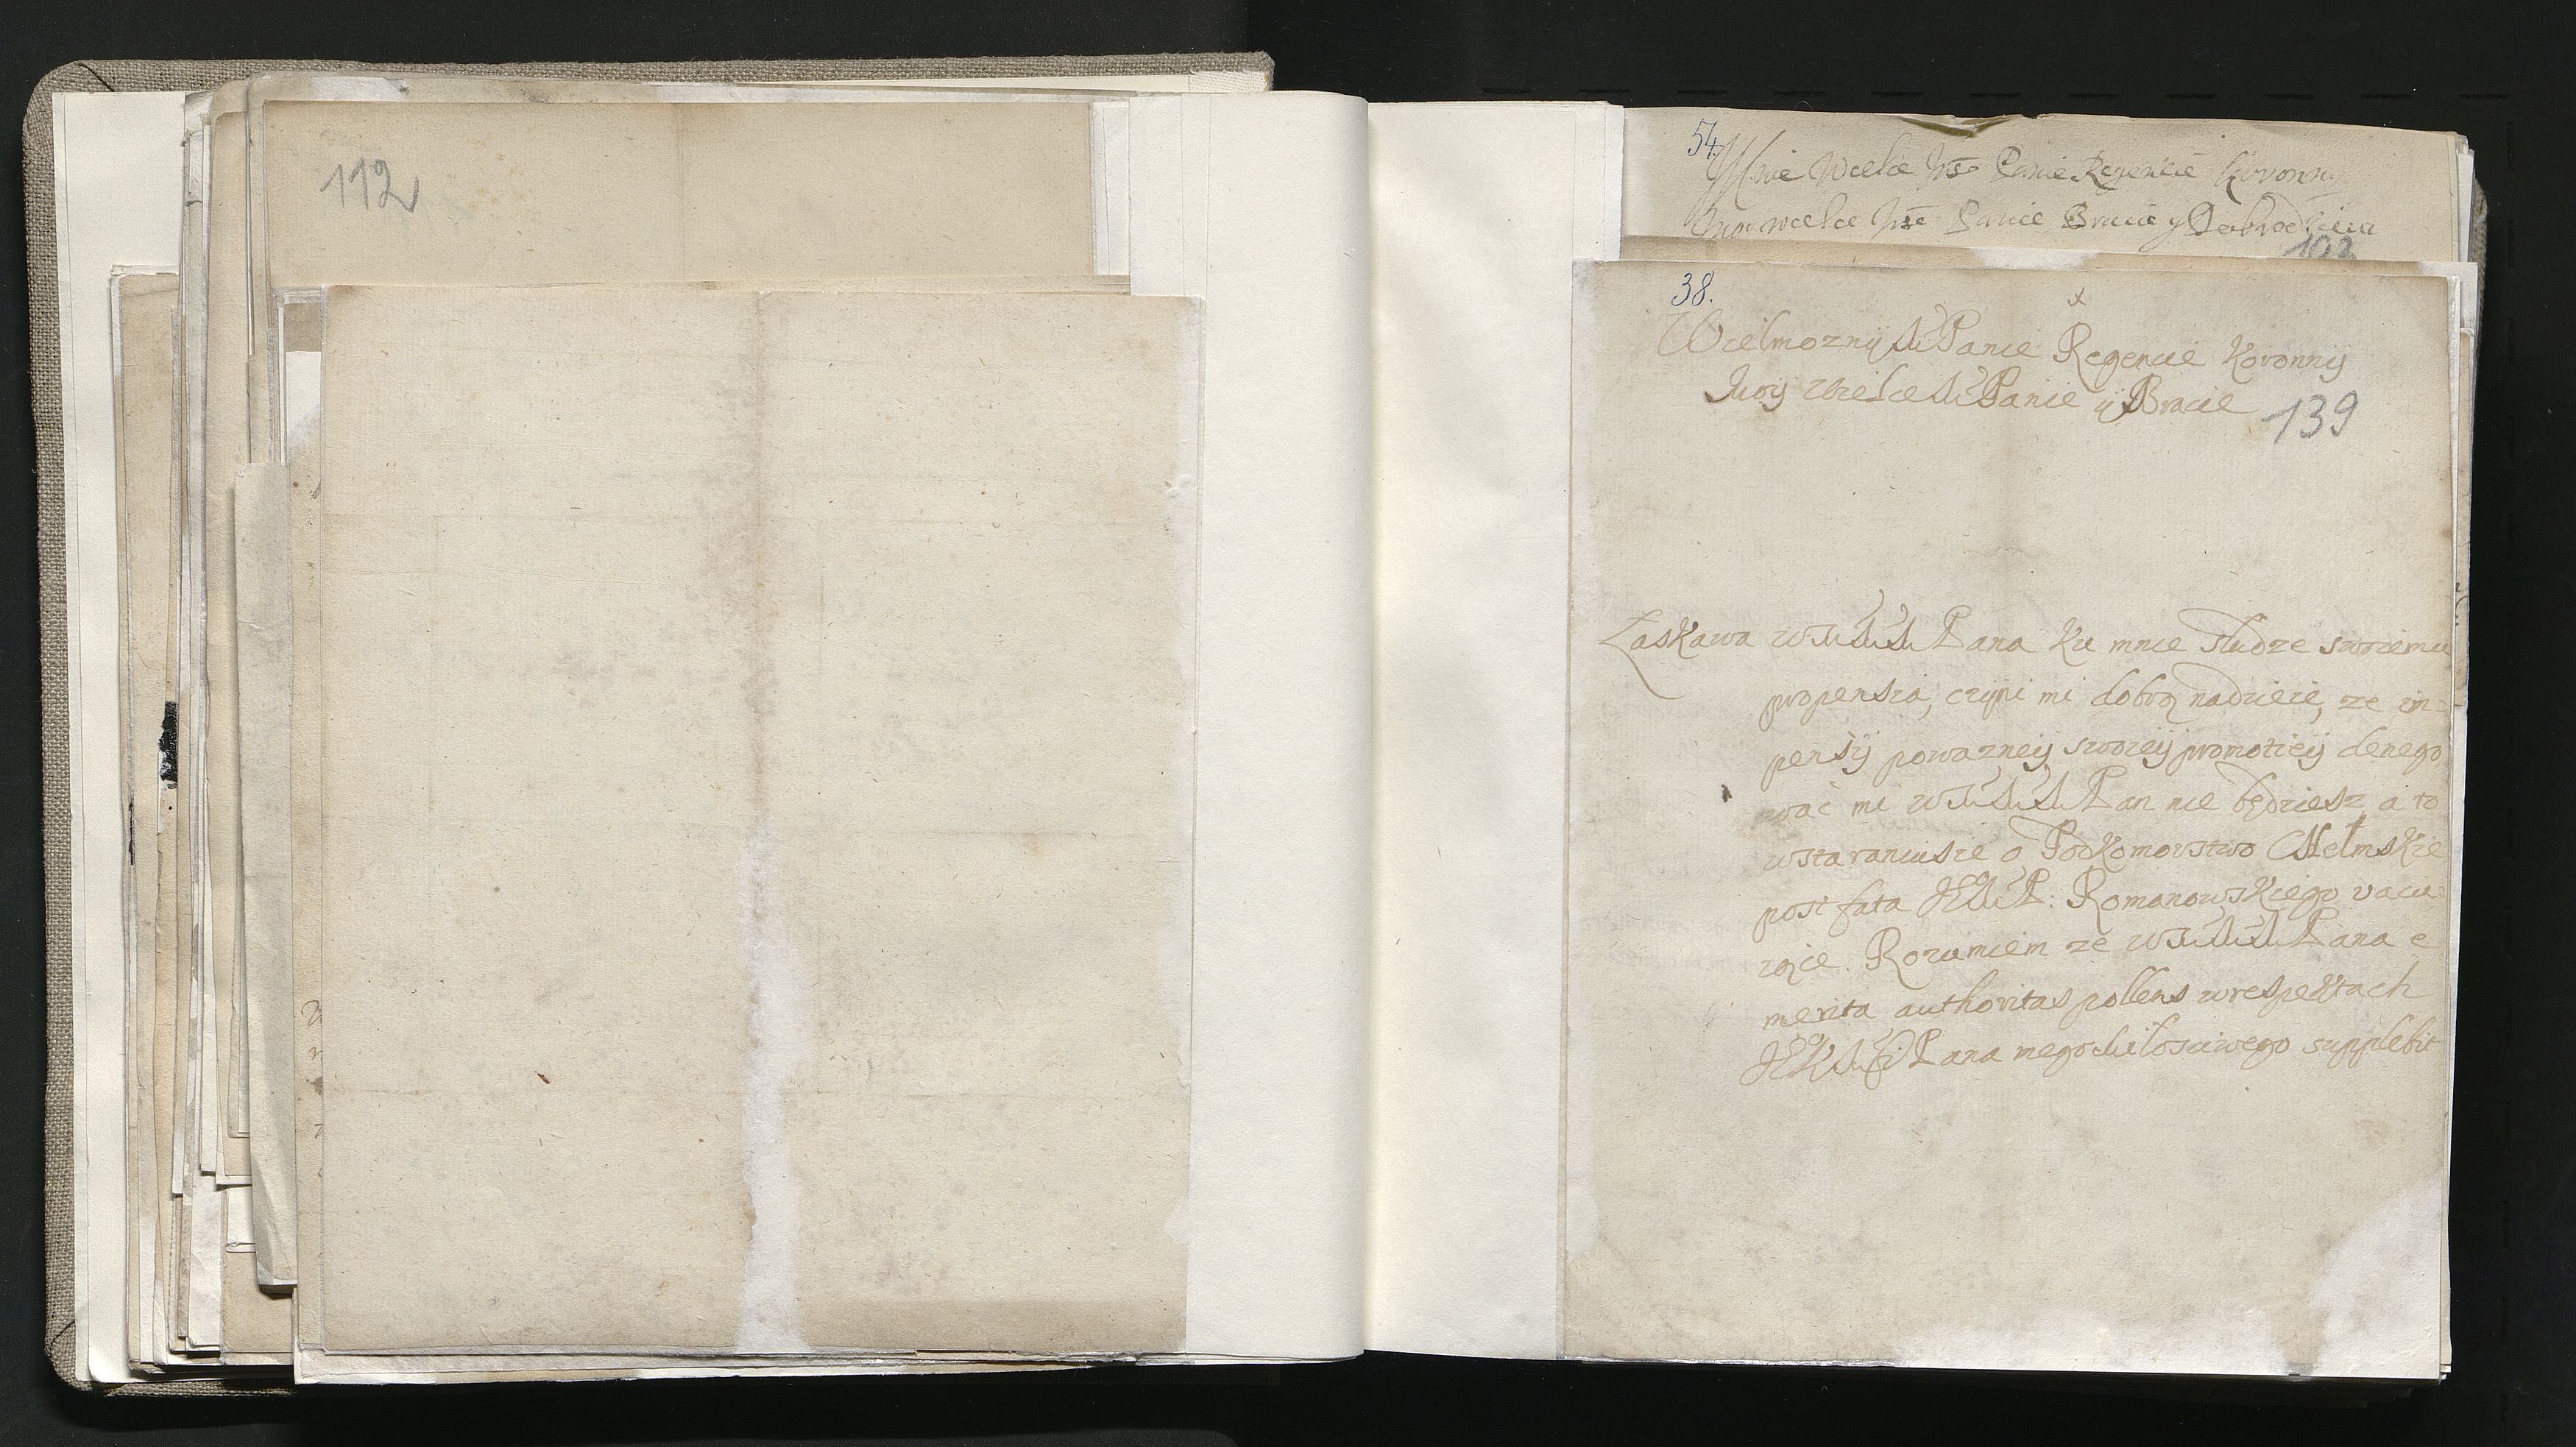 112
54.
Wielce Panie Regencie
wielce Panie Bracie y Dobrodzieiu
103
38.
x
Wielmoznÿ M Panie Regencie Koronnÿ
Moÿ Wielce M Panie ÿ Bracie
139
Łaskawa WMMM Pana ku mnie słudze swoiemu
propensia, czÿni mi dobrą nadzieię, ze im=
pensÿ powazneÿ swoieÿ promotieÿ denego
wać mi WMMM Pan nie będziesz a to
wstaraniusie o Podkomorstwo Chełmskie
post fata JEMP: Romanowskiego vacu
iące. Rozumiem ze WMMM Pana e
merita authoritas pollens w respektach
JKM Pana mego Miłosciwego supplebit